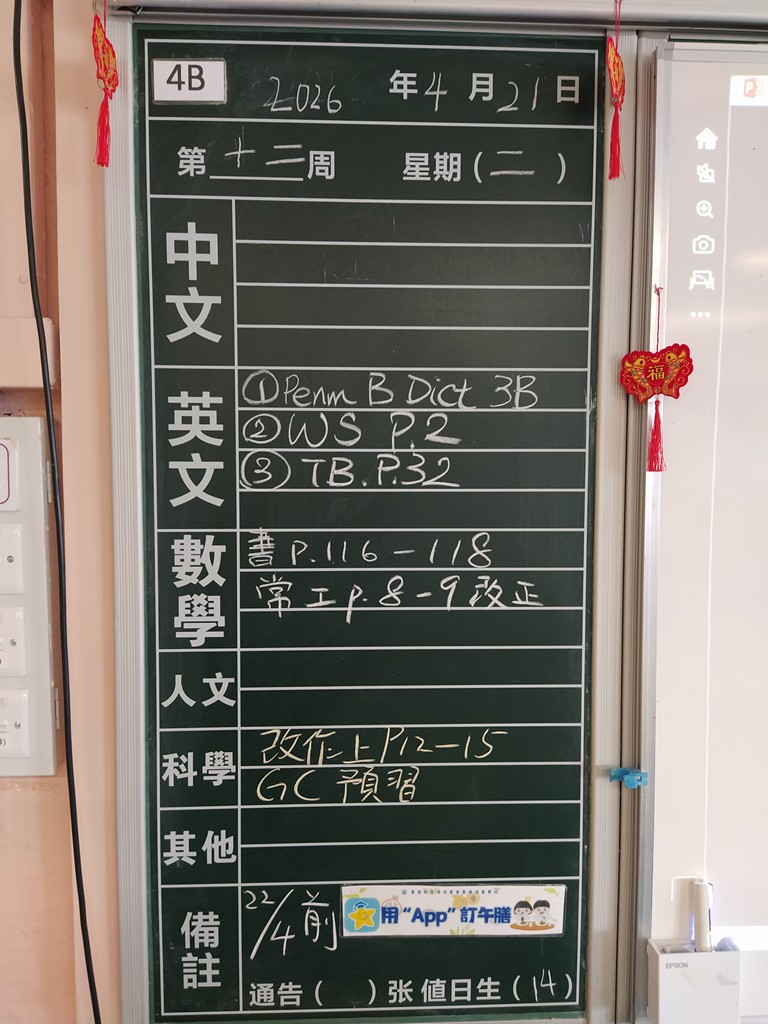 4B 2026 年 4 月 21 日
第 十二 周 星期 ( 二 )
中文
英文
① Penm B Dict 3B
② WS P.2
③ TB. P.32
數學
書 P.116 - 118
常工 p.8 - 9 改正
人文
科學
改作上 P12 - 15
GC 預習
其他
備註
22/4 前
用 "App" 訂午膳
通告 ( ) 张 值日生 ( 14 )
福
EPSON